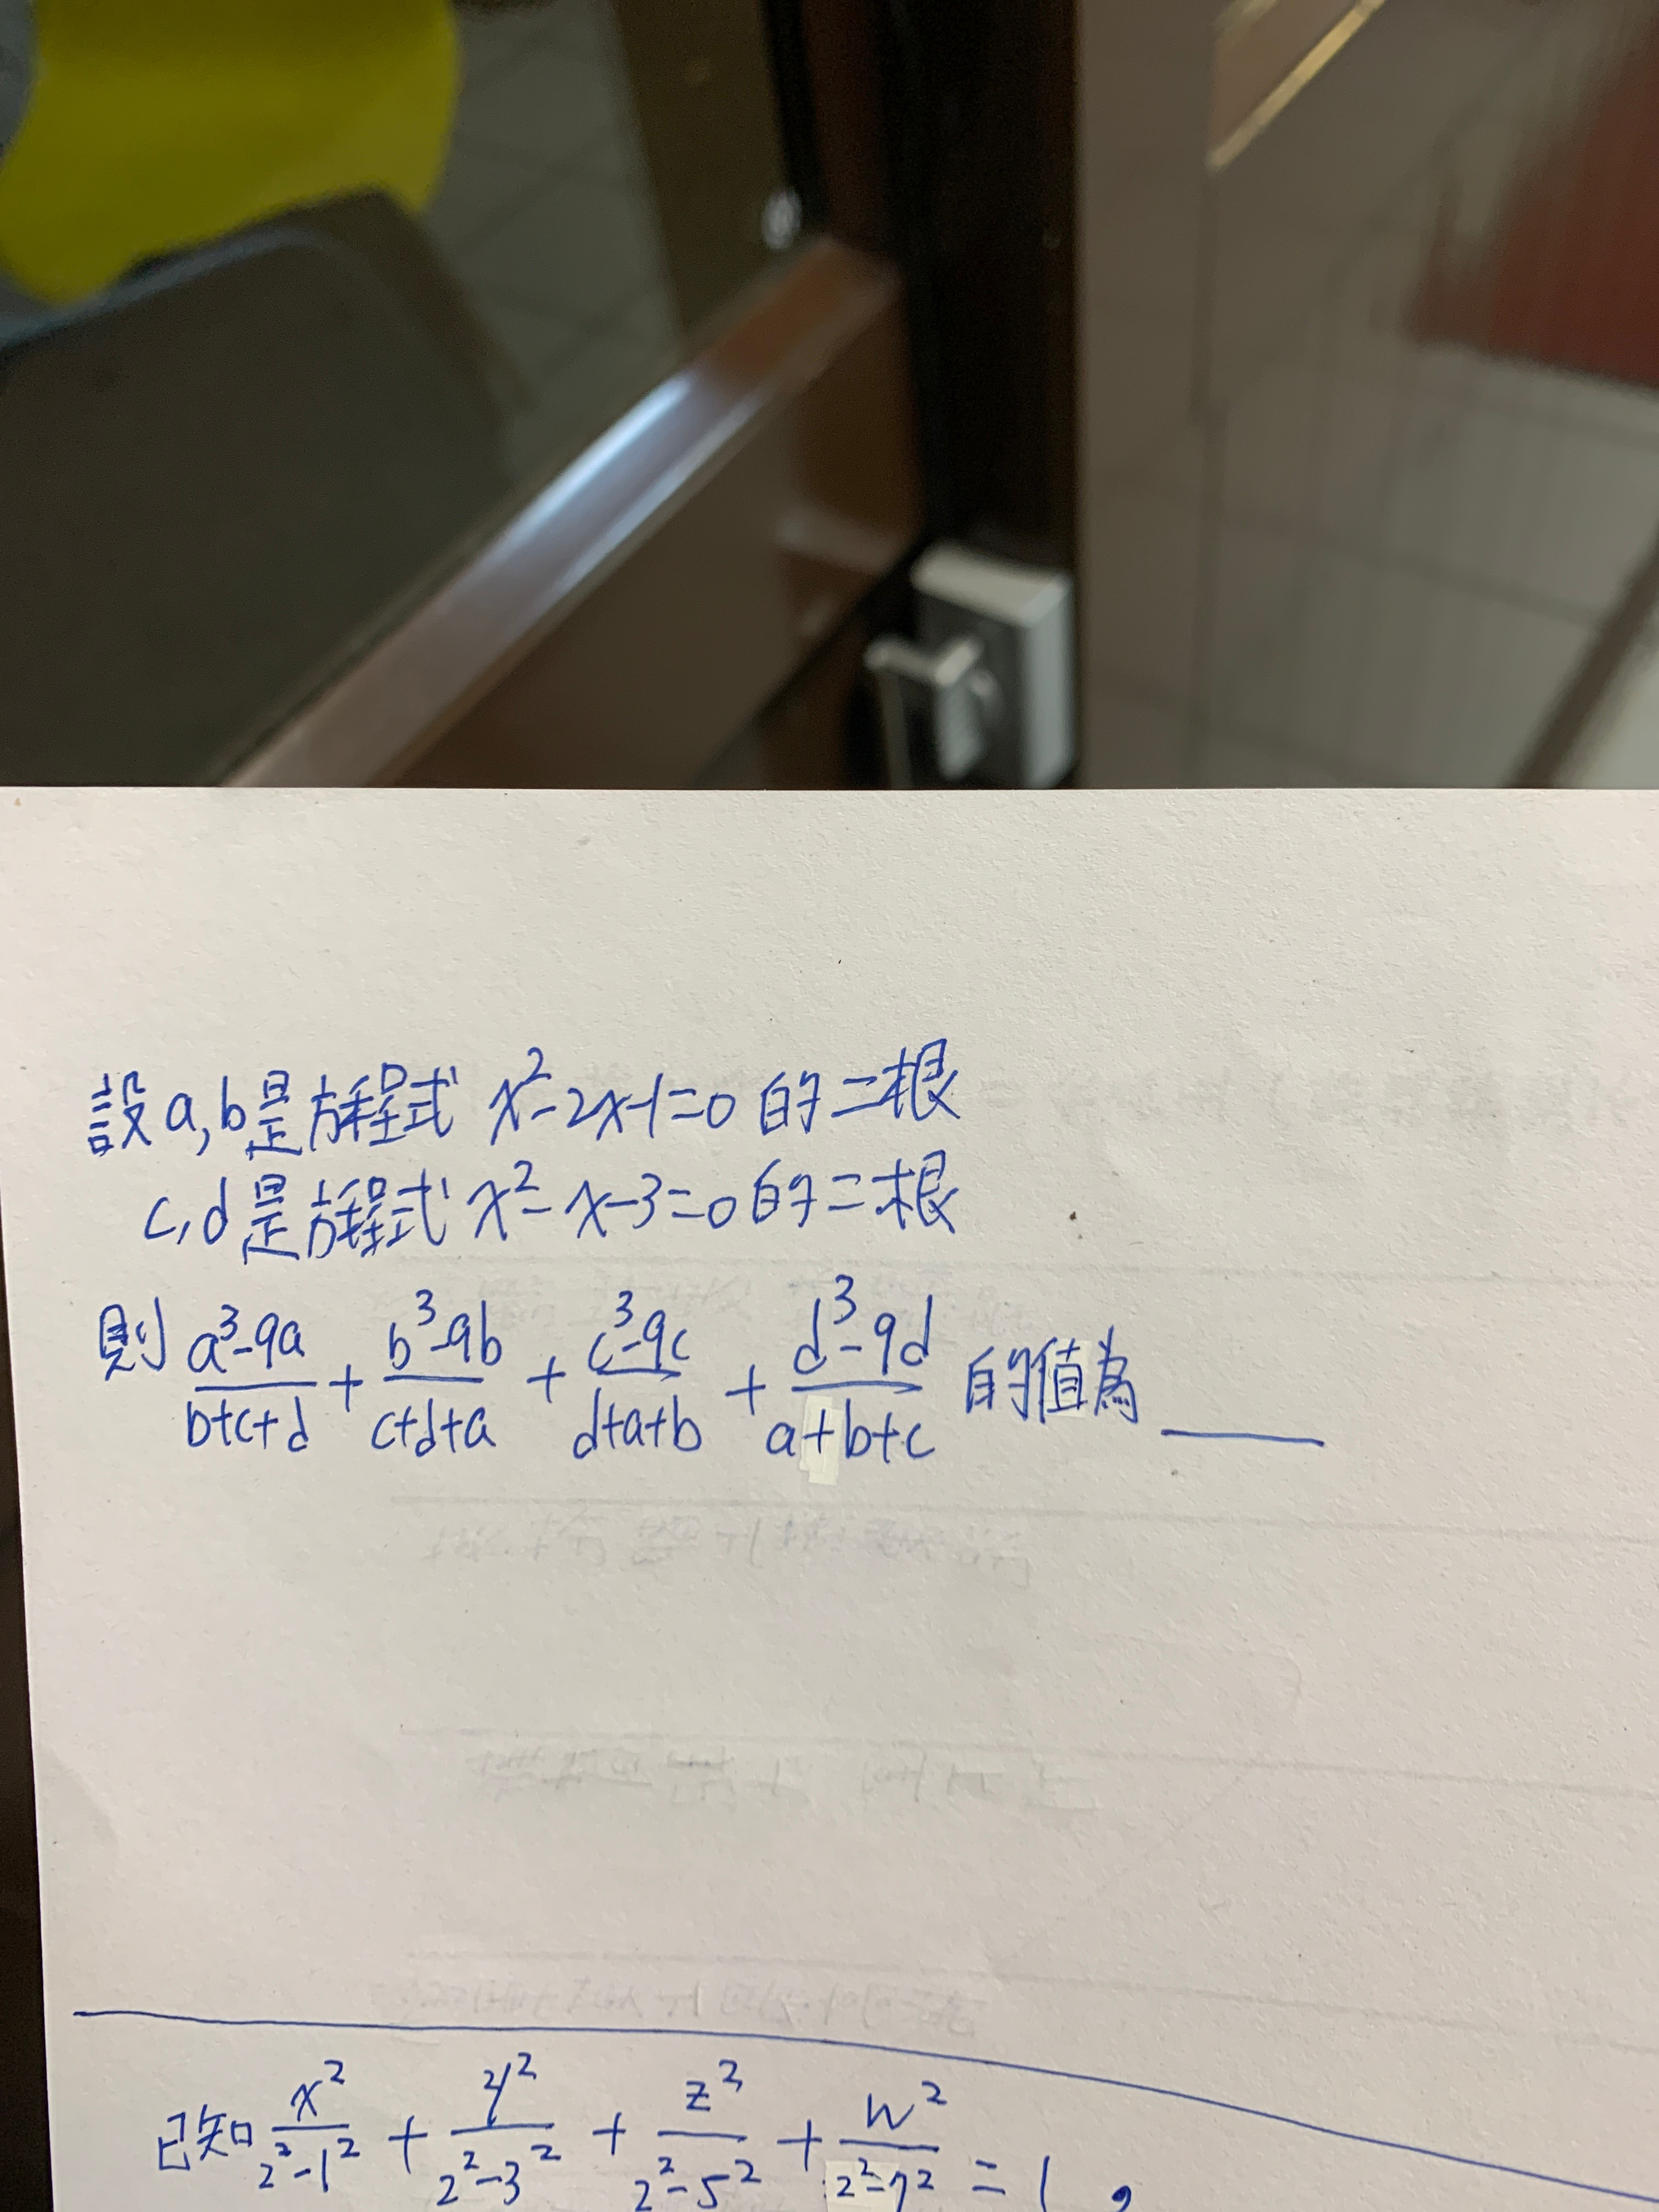 設a,b是方程式 x²-2x-1=0 的二根
c,d是方程式 x²-x-3=0的二根
則 (a³-9a)/(b+c+d) + (b³-9b)/(c+d+a) + (c³-9c)/(d+a+b) + (d³-9d)/(a+b+c) 的值為____
已知 x²/(2²-1²) + y²/(2²-3²) + z²/(2²-5²) + w²/(2²-7²) = 1,